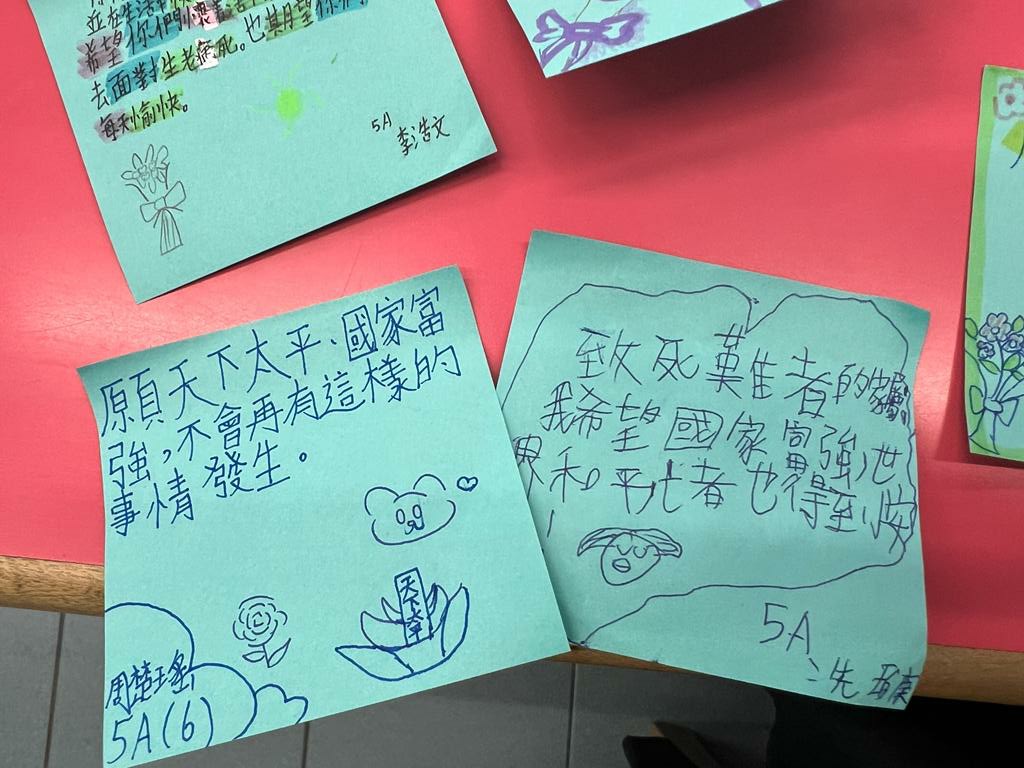 並在生活
希望你們懷
去面對生老病死。也期望你們
每天愉快。
5A
李浩文
願天下太平、國家富
強,不會再有這樣的
事情發生。
天下太平
周楚瑤
5A(6)
致死難者的
我希望國家富強,世
界和平,者也得到安
5A
冼